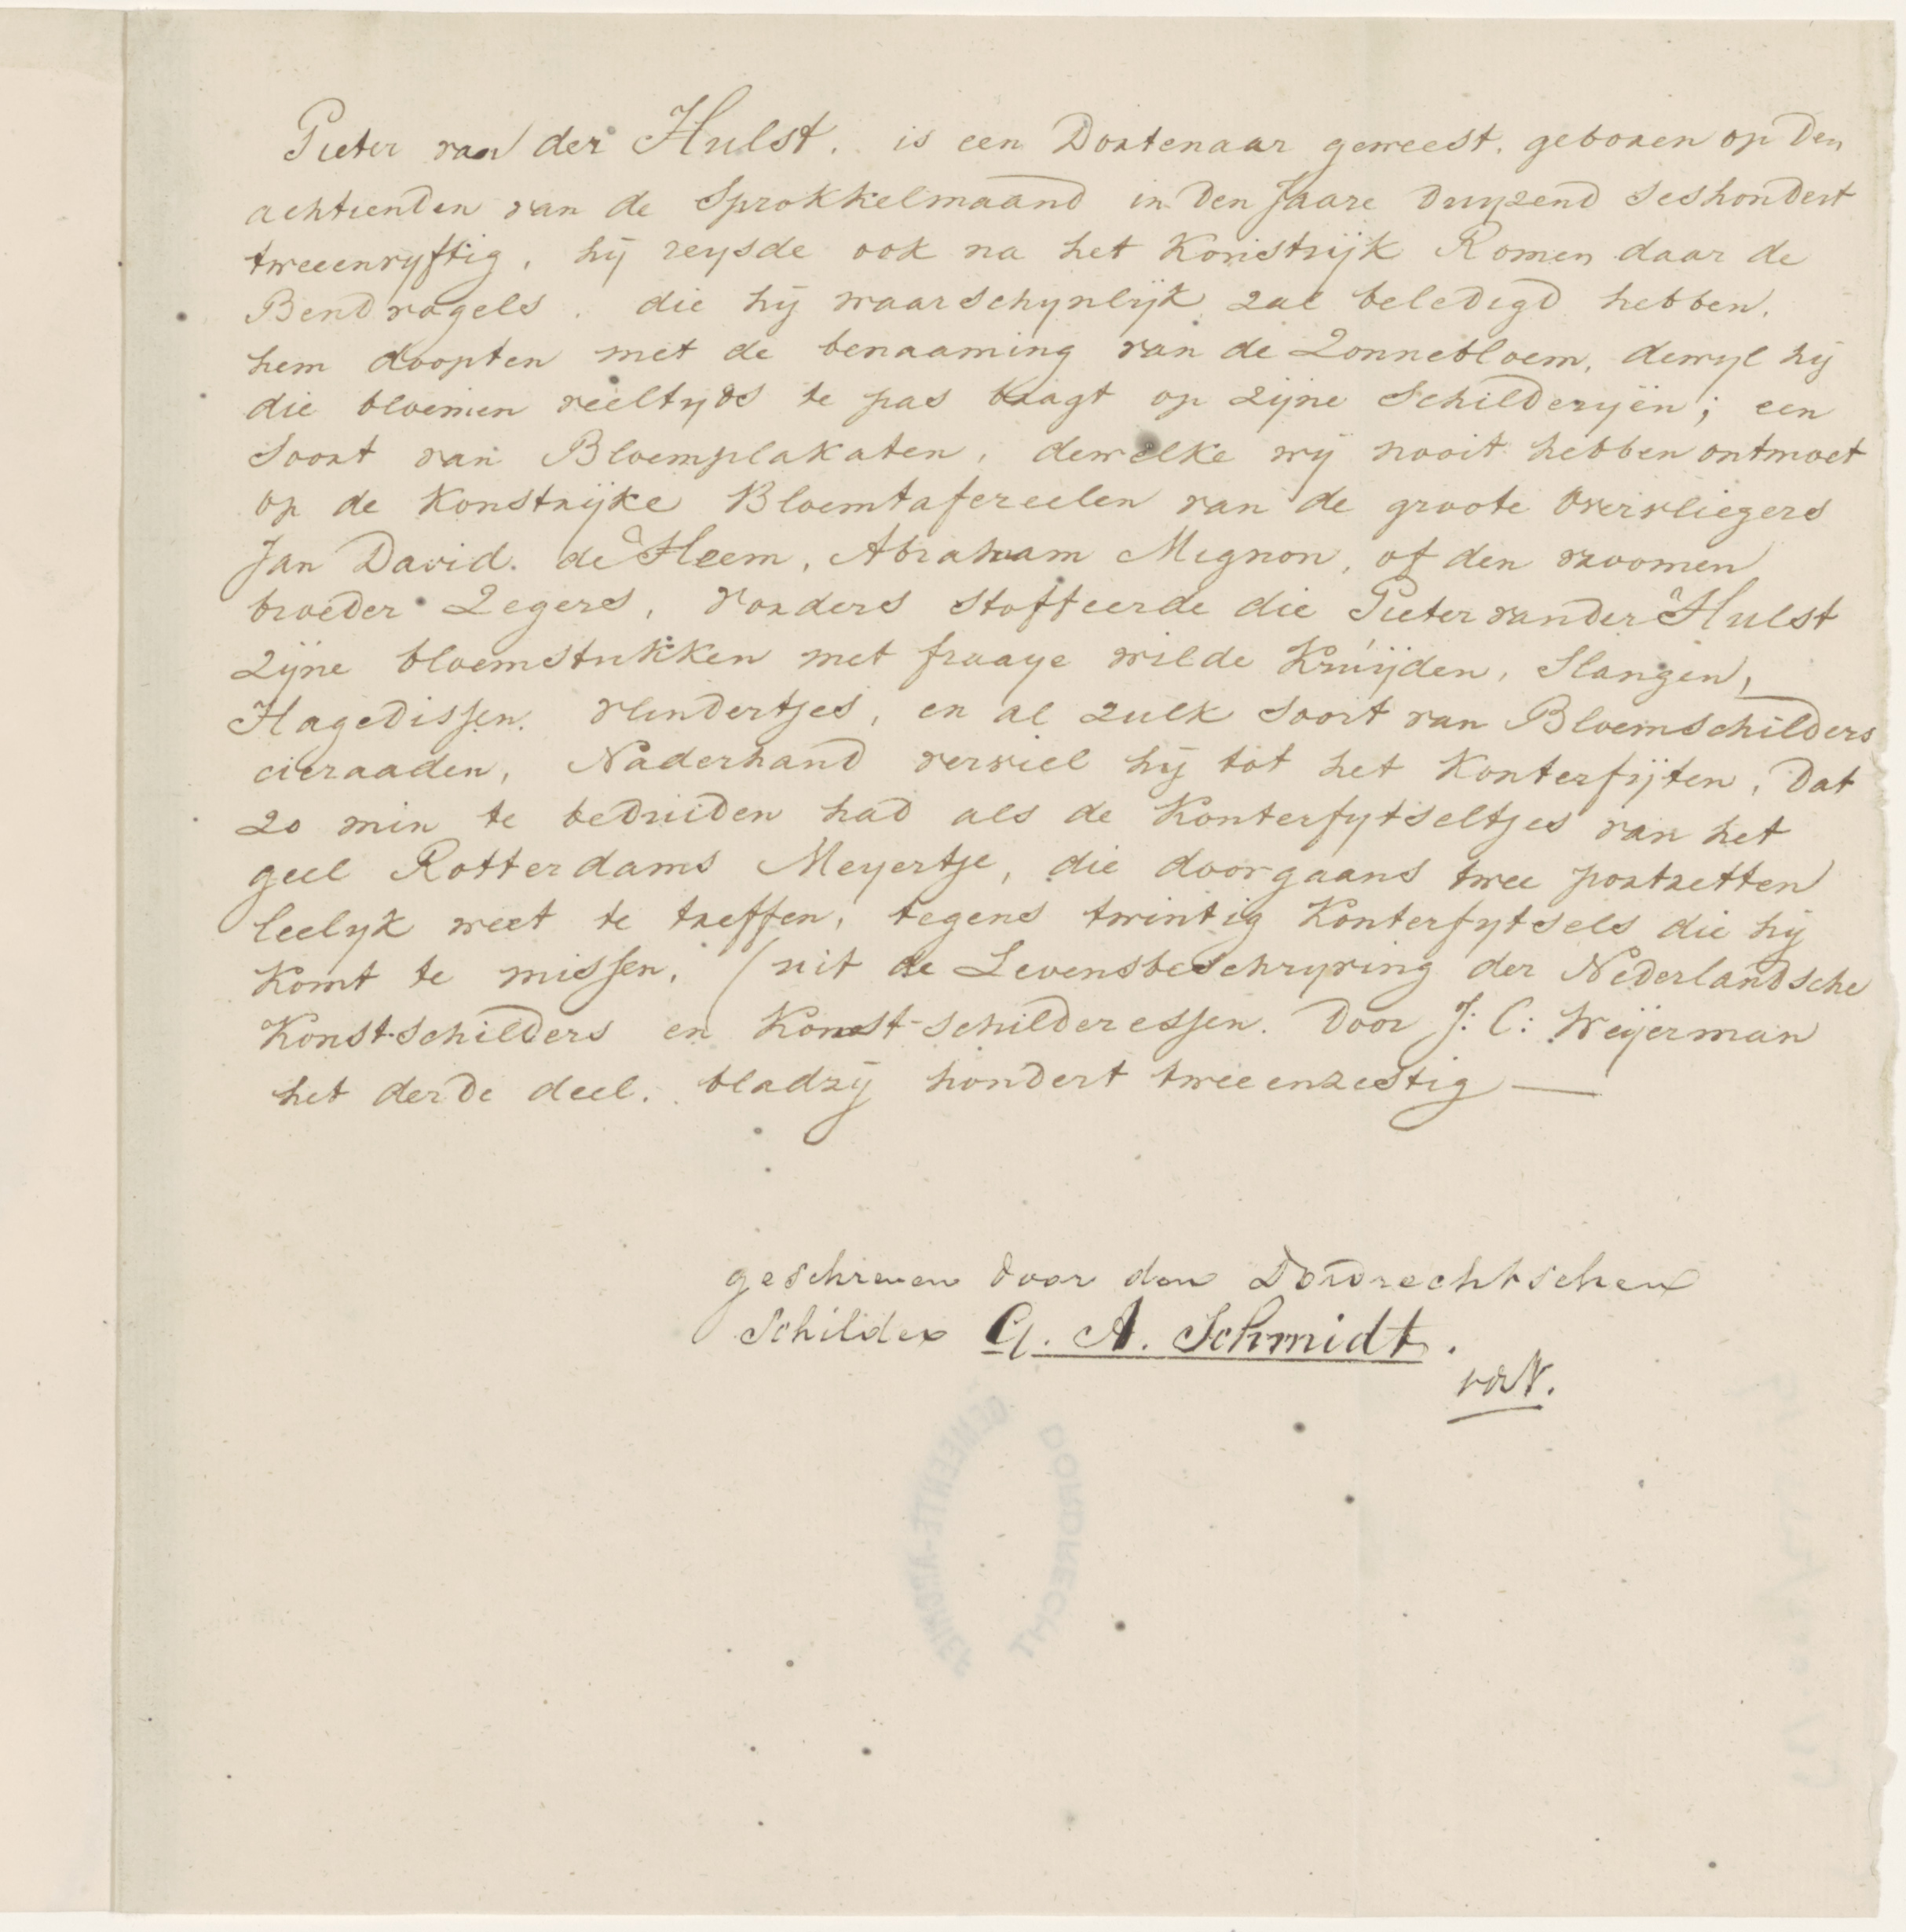 Pieter van der Hulst. is een Dortenaar geweest. geboren op Den
achtienden van de Sprokkelmaand in Den Jaare Duyzend Seshondert
tweeenvyftig, hij reysde ook na het Konstryk Romen daar de
Bendvogels. die hij waarschynlijk zal beledigd hebben.
hem doopten met de benaaming van de Zonnebloem, dewyl hij
die bloemen veeltyds te pas bragt op zijne Schilderyën; een
Soort van Bloemplakaten, dewelke wij nooit hebben ontmoet
op de Konstrijke Bloemtafereelen van de groote Overvliegers
Jan David. de Heem, Abraham Mignon, of den vroomen
broeder Zegers, Vorders Stoffeerde die Pieter vander Hulst
Zijne bloemstukken met fraaye wilde Kruijden, Slangen,
Hagedissen. vlindertjes, en al zulk Soort van Bloemschilders
cieraaden, Naderhand verviel hij tot het Konterfijten, Dat
zo min te beduiden had als de Konterfytseltjes van het
geel Rotterdams Meyertje, die doorgaans twee portretten
leelyk weet te treffen, tegens twintig Konterfytsels die hij
Komt te missen. (uit de Levensbeschryving der Nederlandsche
Konst-schilders en Konst-schilderessen. Door J: C: Weijerman
het derde deel. bladzij hondert tweeenzestig —
geschreven door den Dordrechtschen
Schilder G. A. Schmidt.
GEMEENTE-ARCHIEF
DORDRECHT